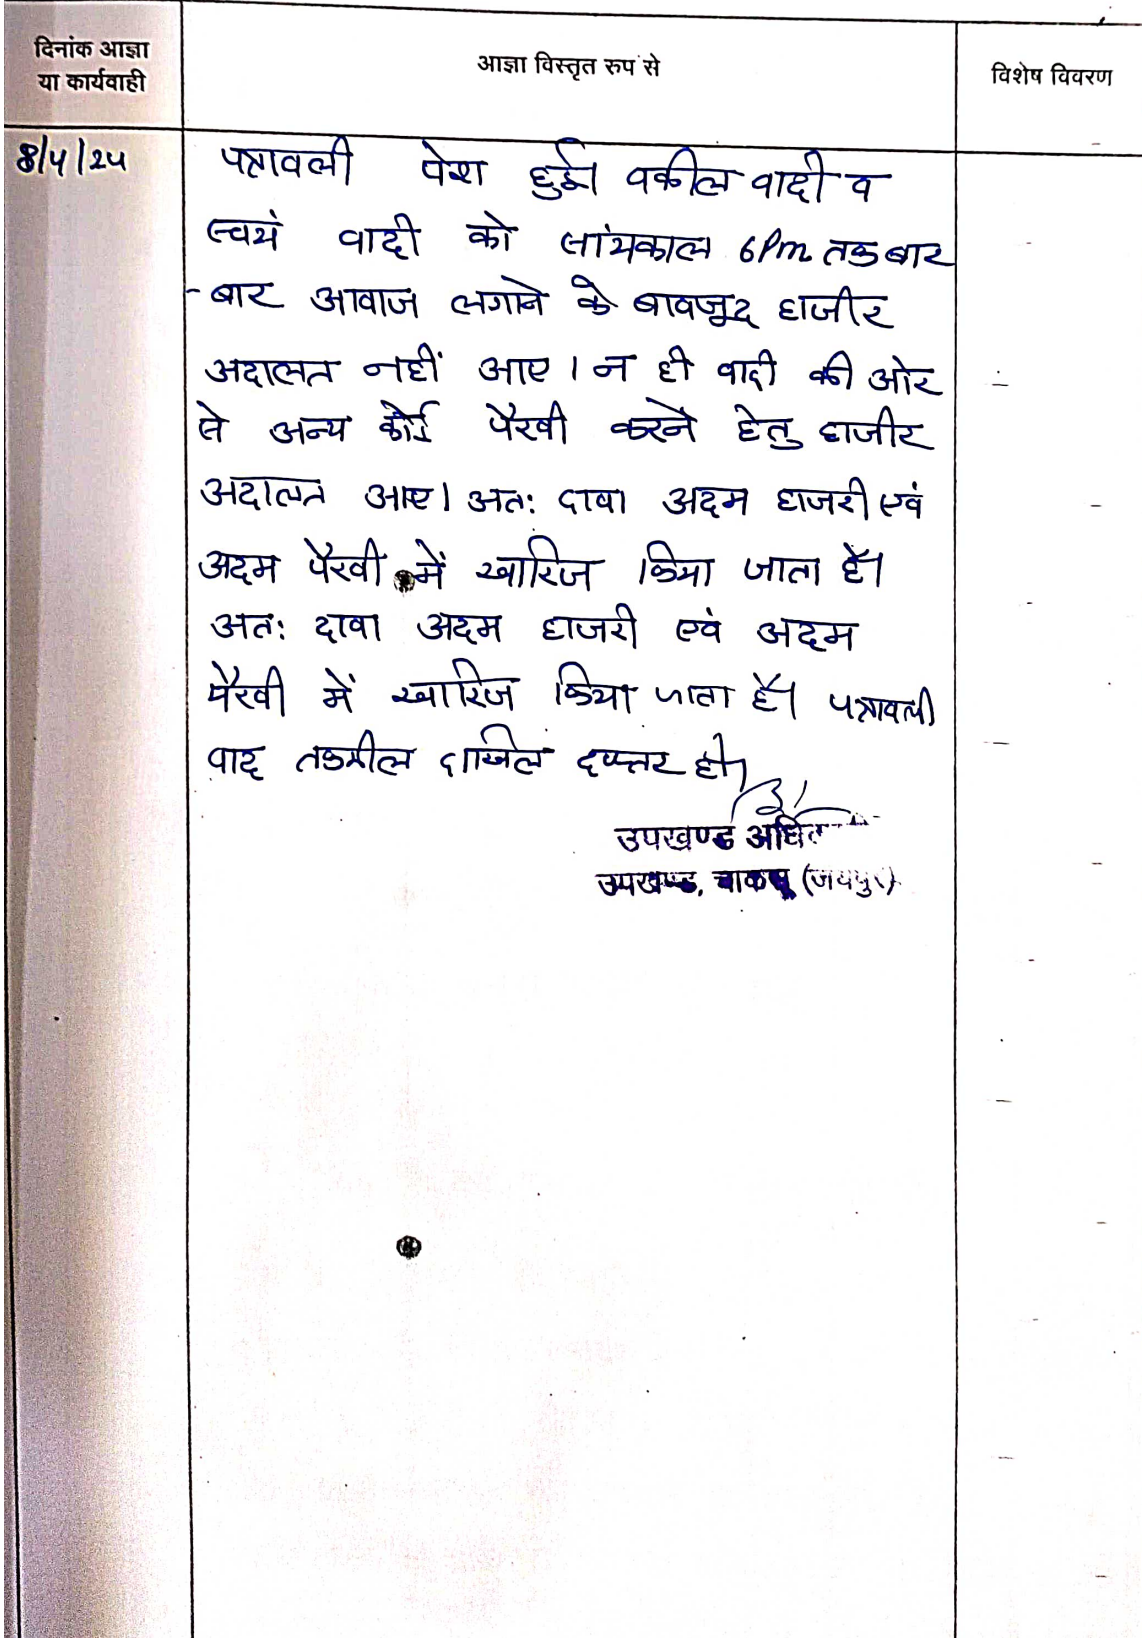 दिनांक आज्ञा
या कार्यवाही
आज्ञा विस्तृत रुप से
विशेष विवरण
8/4/24
पत्रावली पेश हुई। वकील वादी व
स्वयं वादी को सांयकाल 6Pm तक बार
-बार आवाज लगाने के बावजूद हाजीर
अदालत नहीं आए। न ही वादी की ओर
से अन्य कोई पैरवी करने हेतु हाजीर
अदालत आए। अतः दावा अदम हाजरी एवं
अदम पैरवी में खारिज किया जाता है।
अतः दावा अदम हाजरी एवं अदम
पैरवी में खारिज किया जाता है। पत्रावली
वाद तकमील दाखिल दफ्तर हो।
उपखण्ड
उपखण्ड, चाकसू (जयपुर)